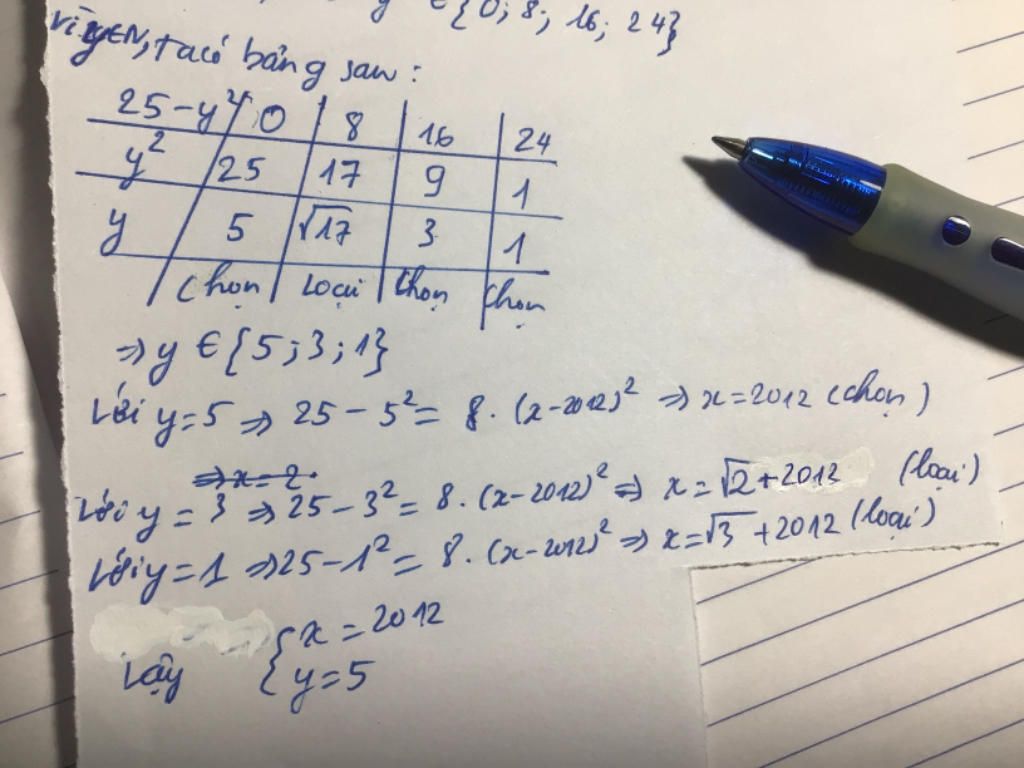 ∈ {0; 8; 16; 24}
Vì y∈N, ta có bảng sau:
25-y² 0 8 16 24
y² 25 17 9 1
y 5 √17 3 1
Chọn Loại Chọn Chọn
⇒ y ∈ {5; 3; 1}
Với y=5 ⇒ 25 - 5² = 8. (x-2012)² ⇒ x=2012 (chọn)
⇒ x = 2.
Với y = 3 ⇒ 25 - 3² = 8. (x-2012)² ⇒ x = √2+2012 (loại)
Với y=1 ⇒ 25-1² = 8. (x-2012)² ⇒ x=√3 +2012 (loại)
Vậy { x = 2012
y=5